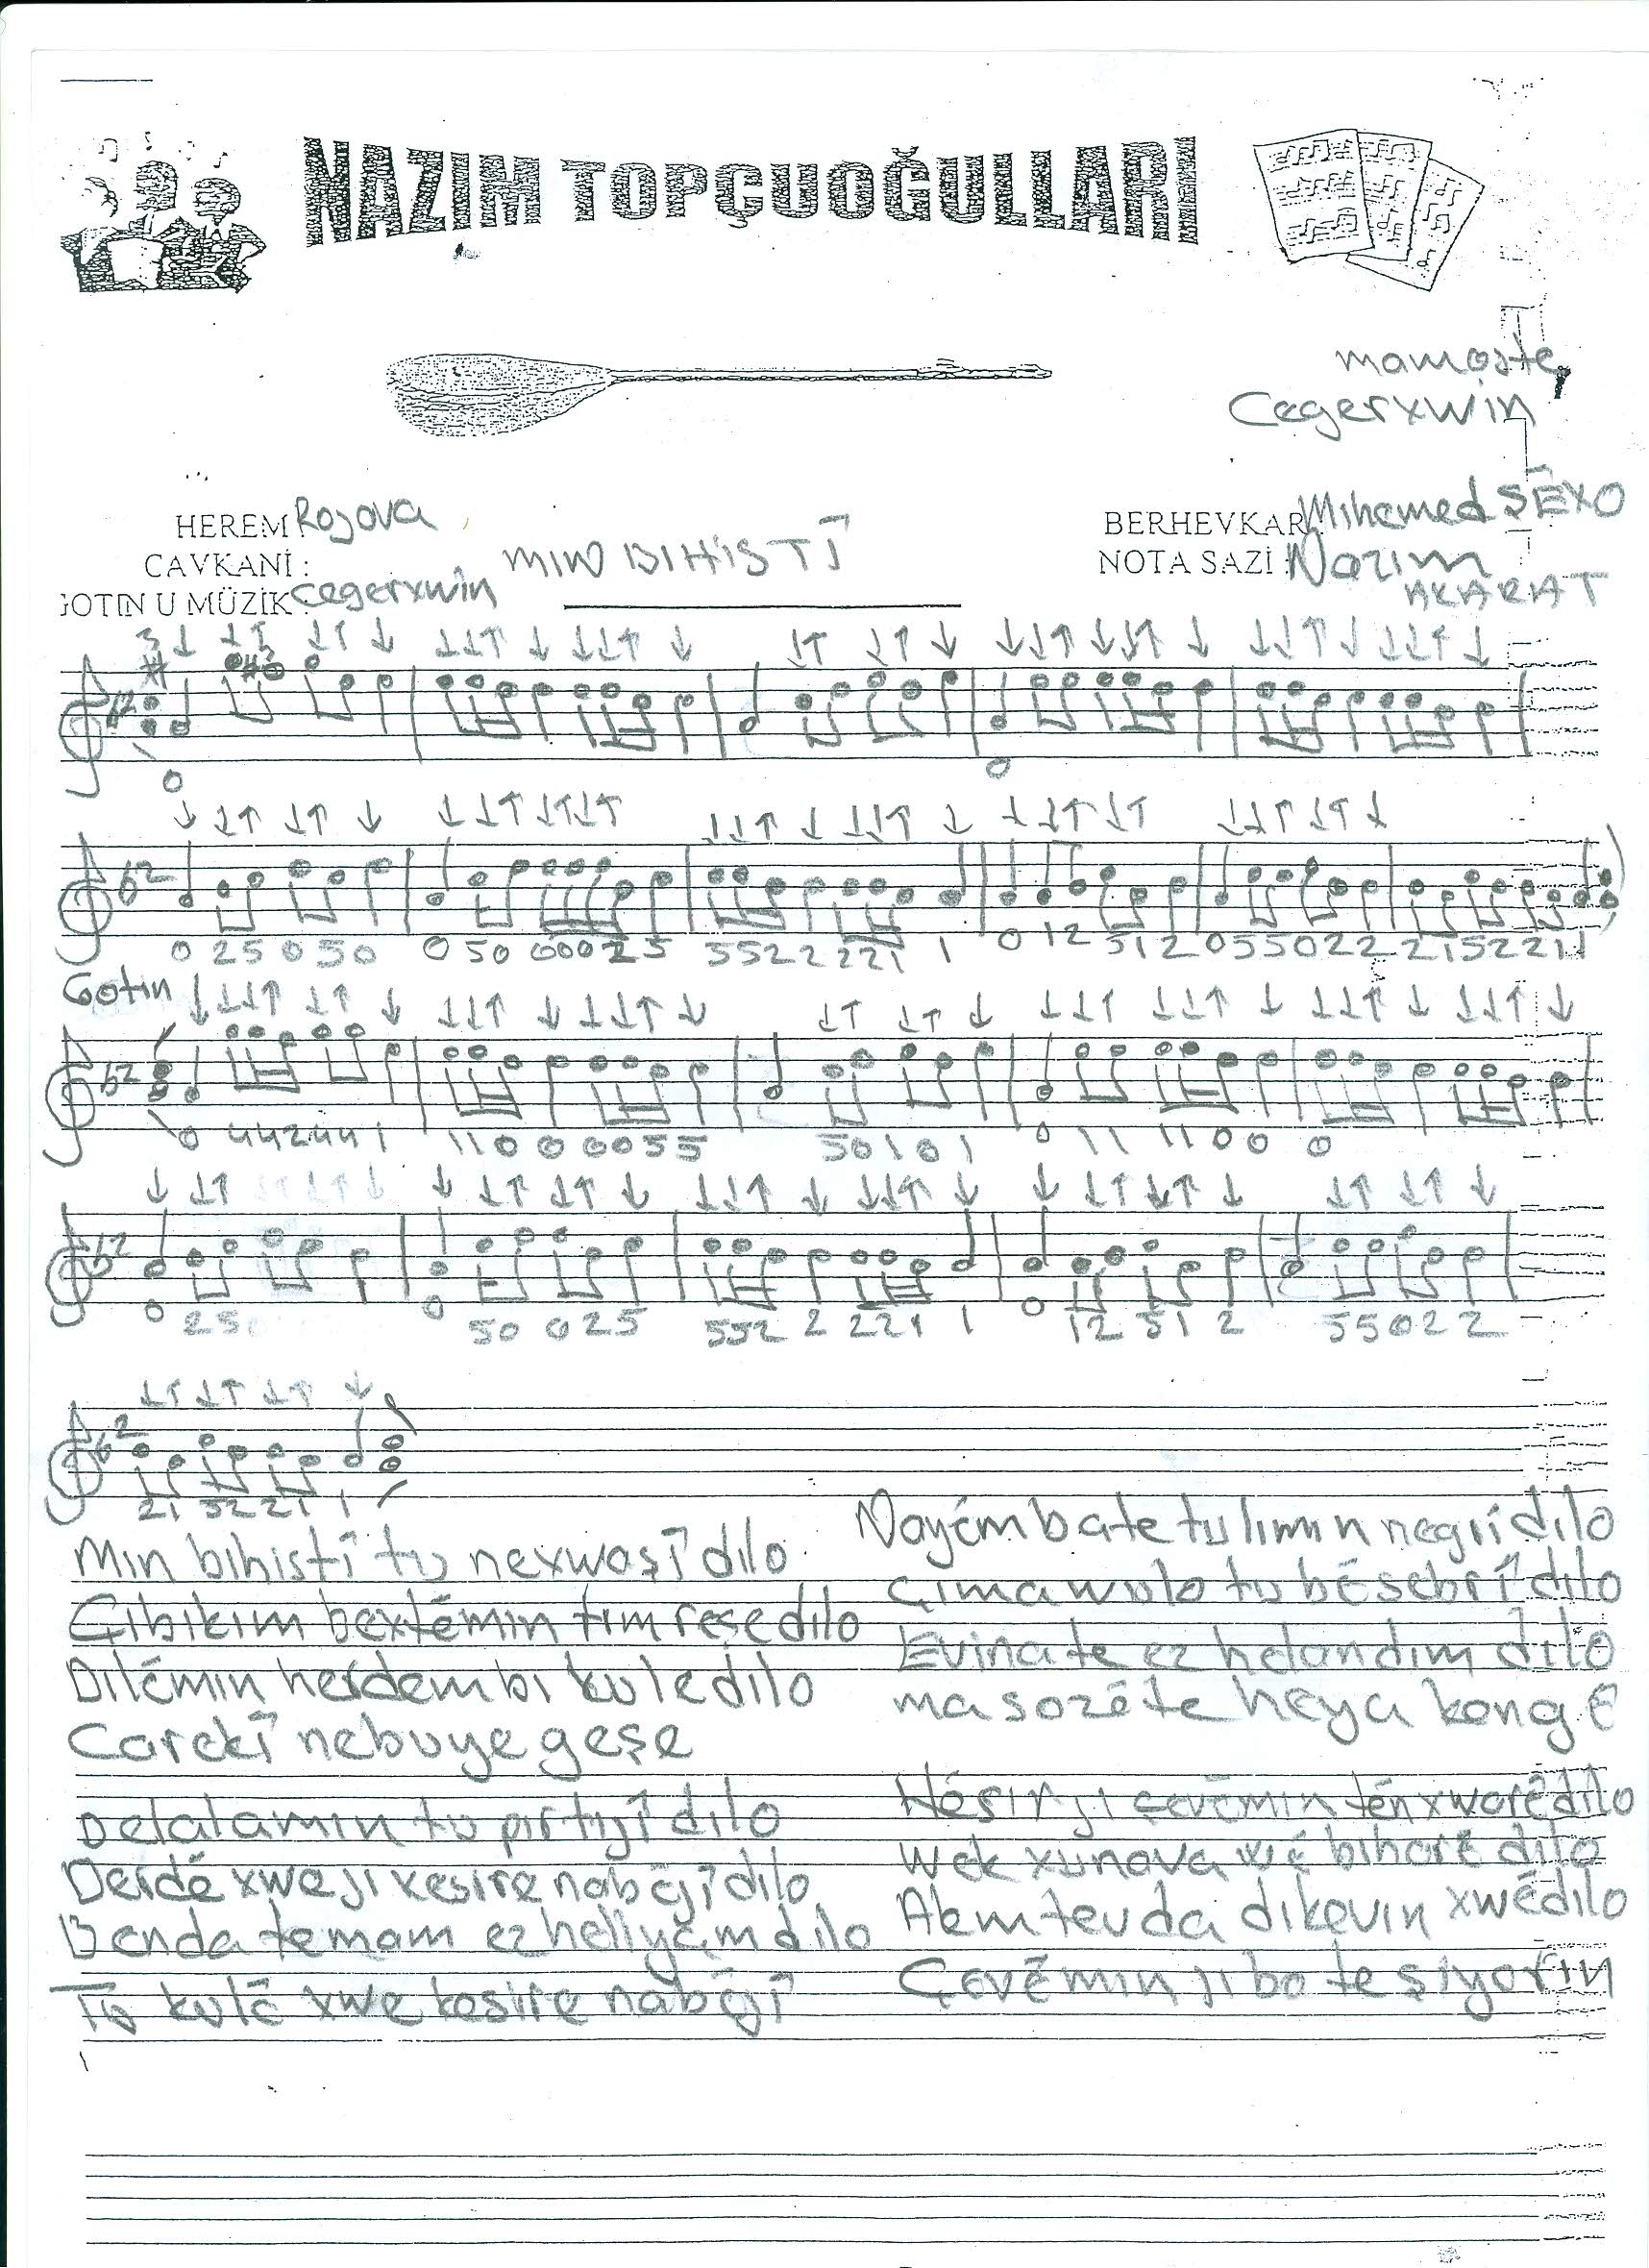 NAZIM TOPÇUOĞULLARI
mamoste,
Cegerxwin
HEREM Rojova
CAVKANİ :
GOTIN U MÜZİK : Cegerxwin
MIN BIHISTÎ
BERHEVKAR : Mihemed SÊXO
NOTA SAZİ : Nazım
AKARAT
0 25 0 50 0 50 000 25 5522 221 1 0 12 512 055022 2152211
Gotin
0 442441 110 0 0055 50101 0 11 1100 0
0 25 0 50 025 552 2 221 1 0 12 51 2 55022
21 52 21 1
Min bihistî tu nexwaşî dilo
Çibikim bextêmin tim reşe dilo
Dilêmin herdem bi kule dilo
Carekî nebuye geşe
Delalamin tu pirtijî dilo
Derdê xwe ji kesire nabêjî dilo
Benda temam ez hellyam dilo
Tu kulê xwe kesire nabêjî
Nayêm bate tu limin negrî dilo
Çima wulo tu bê sebrî dilo
Evinate ez helandim dilo
ma sozê te heya kengê
Hêsir ji çevêmin tên xwarê dilo
Wek xunava wê biharê dilo
Alem tev da dikevin xwê dilo
Çevêmin ji bo te şiyarin